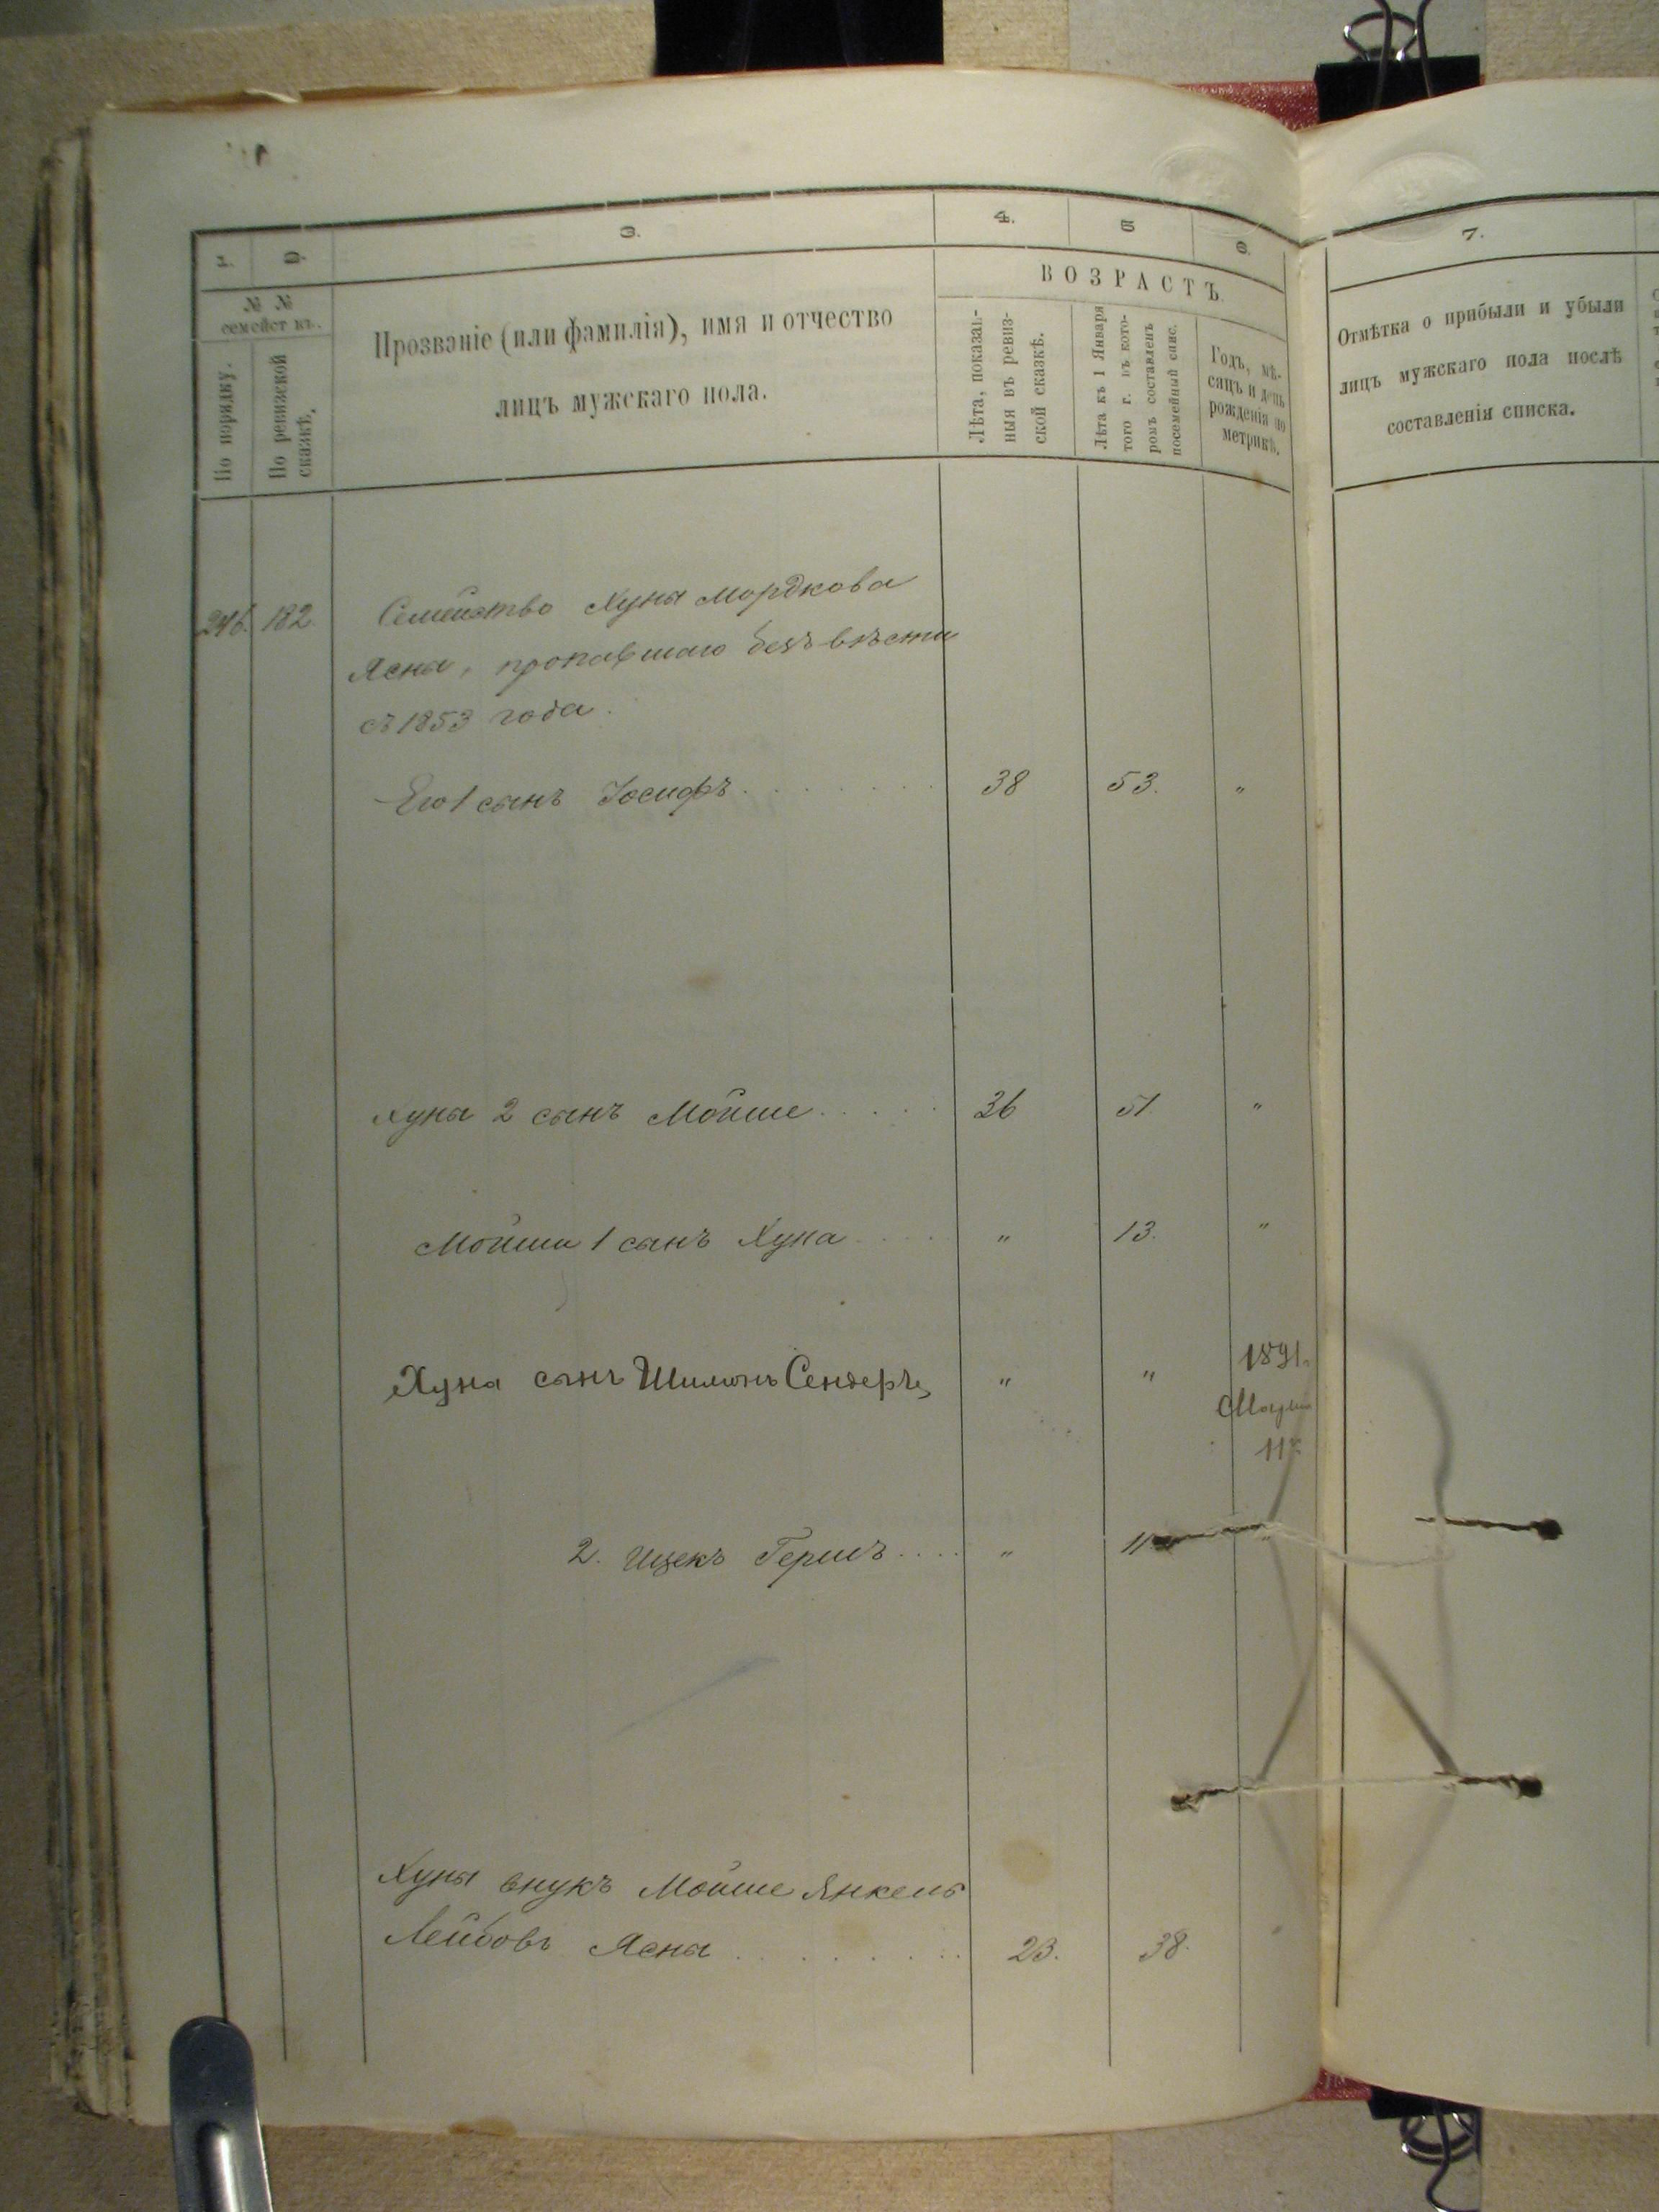 1.
2.
3.
4.
5
6.
7.
№ №
семействъ.
По порядку.
По ревизской
сказкѣ.
Прозваніе (или фамилія), имя и отчество
лицъ мужскаго пола.
ВОЗРАСТЪ.
Лѣта, показан-
ныя въ ревиз-
ской сказкѣ.
Лѣта къ 1 Января
того г. въ кото-
ромъ составленъ
посемейный спис.
Годъ, мѣ-
сяцъ и день
рожденія по
метрикѣ.
Отмѣтка о прибыли и убыли
лицъ мужскаго пола послѣ
составленія списка.
246. 182 Семейство Хуны Мордкова
Ясны, пропавшаго безъ вѣсти
съ 1853 года.
Его 1 сынъ Іосифъ 38 53. "
Хуны 2 сынъ Мойше 36 51 "
Мойши 1 сынъ Хуна " 13. "
Хуна сынъ Шимонъ Сендеръ " " 1891.
11
2. Ицекъ Гершъ " 11 "
Хуны внукъ Мойше Янкель
Лейбовъ Ясны 23. 38.